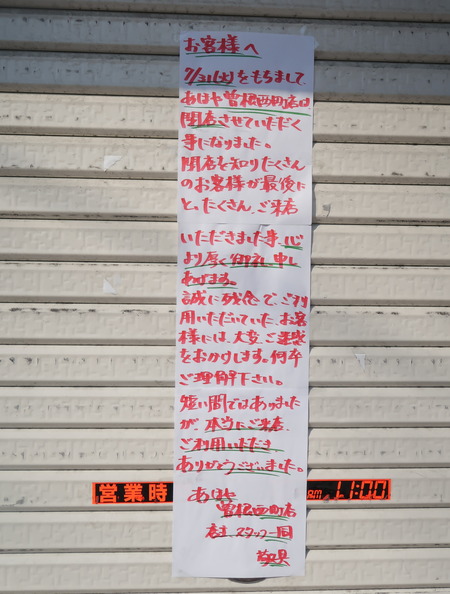 お客様へ
7/31(火)をもちまして、
あほや曽根西町店は
閉店させていただく
事になりました。
閉店を知りたくさん
のお客様が最後に
と、たくさん、ご来店
いただきました事、心
より厚く御礼申し
あげます。
誠に残念で、ご利
用いただいていた、お客
様には、大変、ご迷惑
をおかけします。何卒
ご理解下さい。
短い間ではありました
が、本当にご来店、
ご利用いただき
ありがとうございました。
営業時
11:00
あほや
曽根西町店
店主、スタッフ一同
敬具